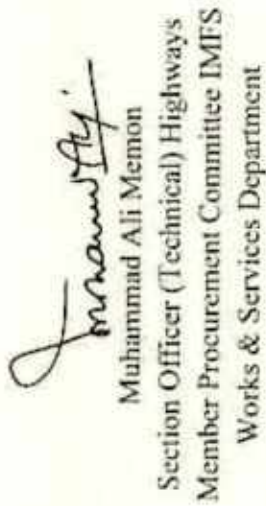 Muhammad Ali Memon
Section Officer (Technical) Highways
Member Procurement Committee IMFS
Works & Services Department